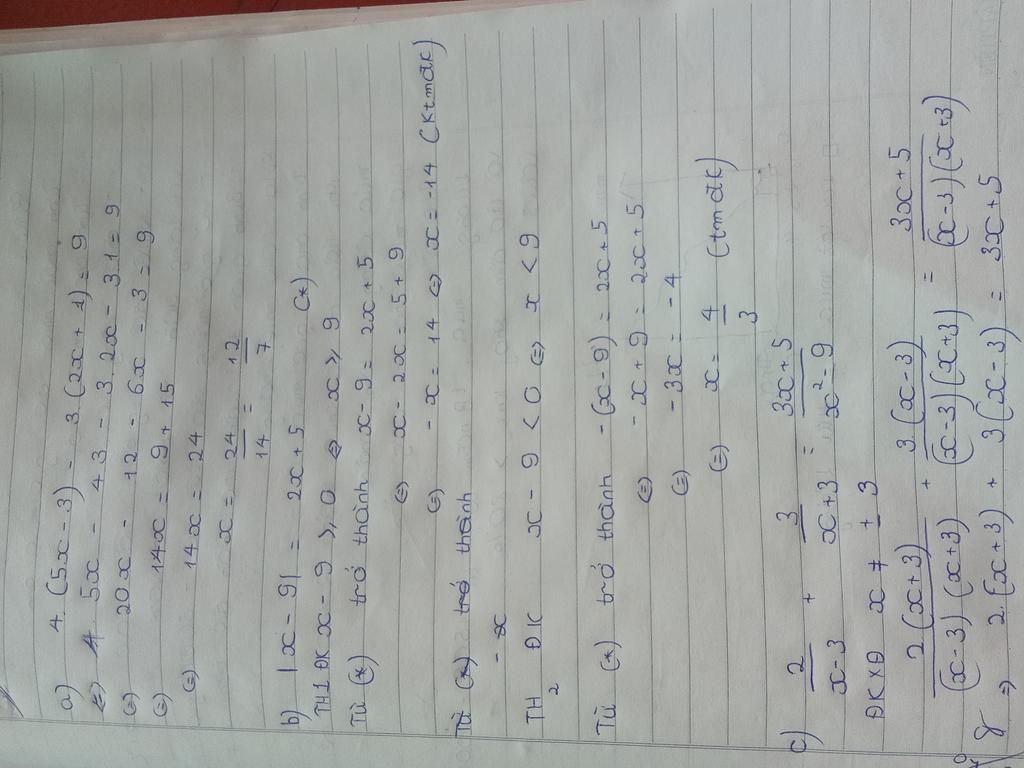 a) 4.(5x-3) - 3.(2x+1) = 9
⇔ 4 5x - 4 3 - 3 2x - 3 1 = 9
⇔ 20x - 12 - 6x - 3 = 9
⇔ 14x = 9 + 15
⇔ 14x = 24
x = 24/14 = 12/7
b) |x-9| = 2x+5 (*)
TH1 ĐK x-9 ≥ 0 ⇔ x ≥ 9
Từ (*) trở thành x-9 = 2x+5
⇔ x-2x = 5+9
⇔ -x = 14 ⇔ x = -14 (Ktmđk)
Từ (*) trở thành
- x
TH2 ĐK x-9 < 0 ⇔ x < 9
Từ (*) trở thành -(x-9) = 2x+5
⇔ -x+9 = 2x+5
⇔ -3x = -4
⇔ x = 4/3 (tmđk)
c) 2/(x-3) + 3/(x+3) = (3x+5)/(x²-9)
ĐKXĐ x ≠ ±3
2(x+3)/(x-3)(x+3) + 3(x-3)/(x-3)(x+3) = 3x+5/(x-3)(x+3)
⇒ 2.(x+3) + 3(x-3) = 3x+5